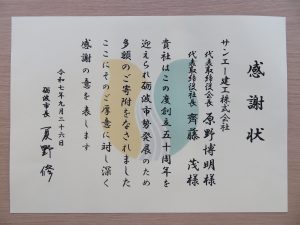 感謝状
サンエー建工株式会社
代表取締役会長 原野博明様
代表取締役社長 齊藤茂様
貴社はこの度創立五十周年を
迎えられ砺波市勢発展のため
多額のご寄附をなされました
ここにそのご厚意に対し深く
感謝の意を表します
令和七年九月二十六日
砺波市長 夏野修